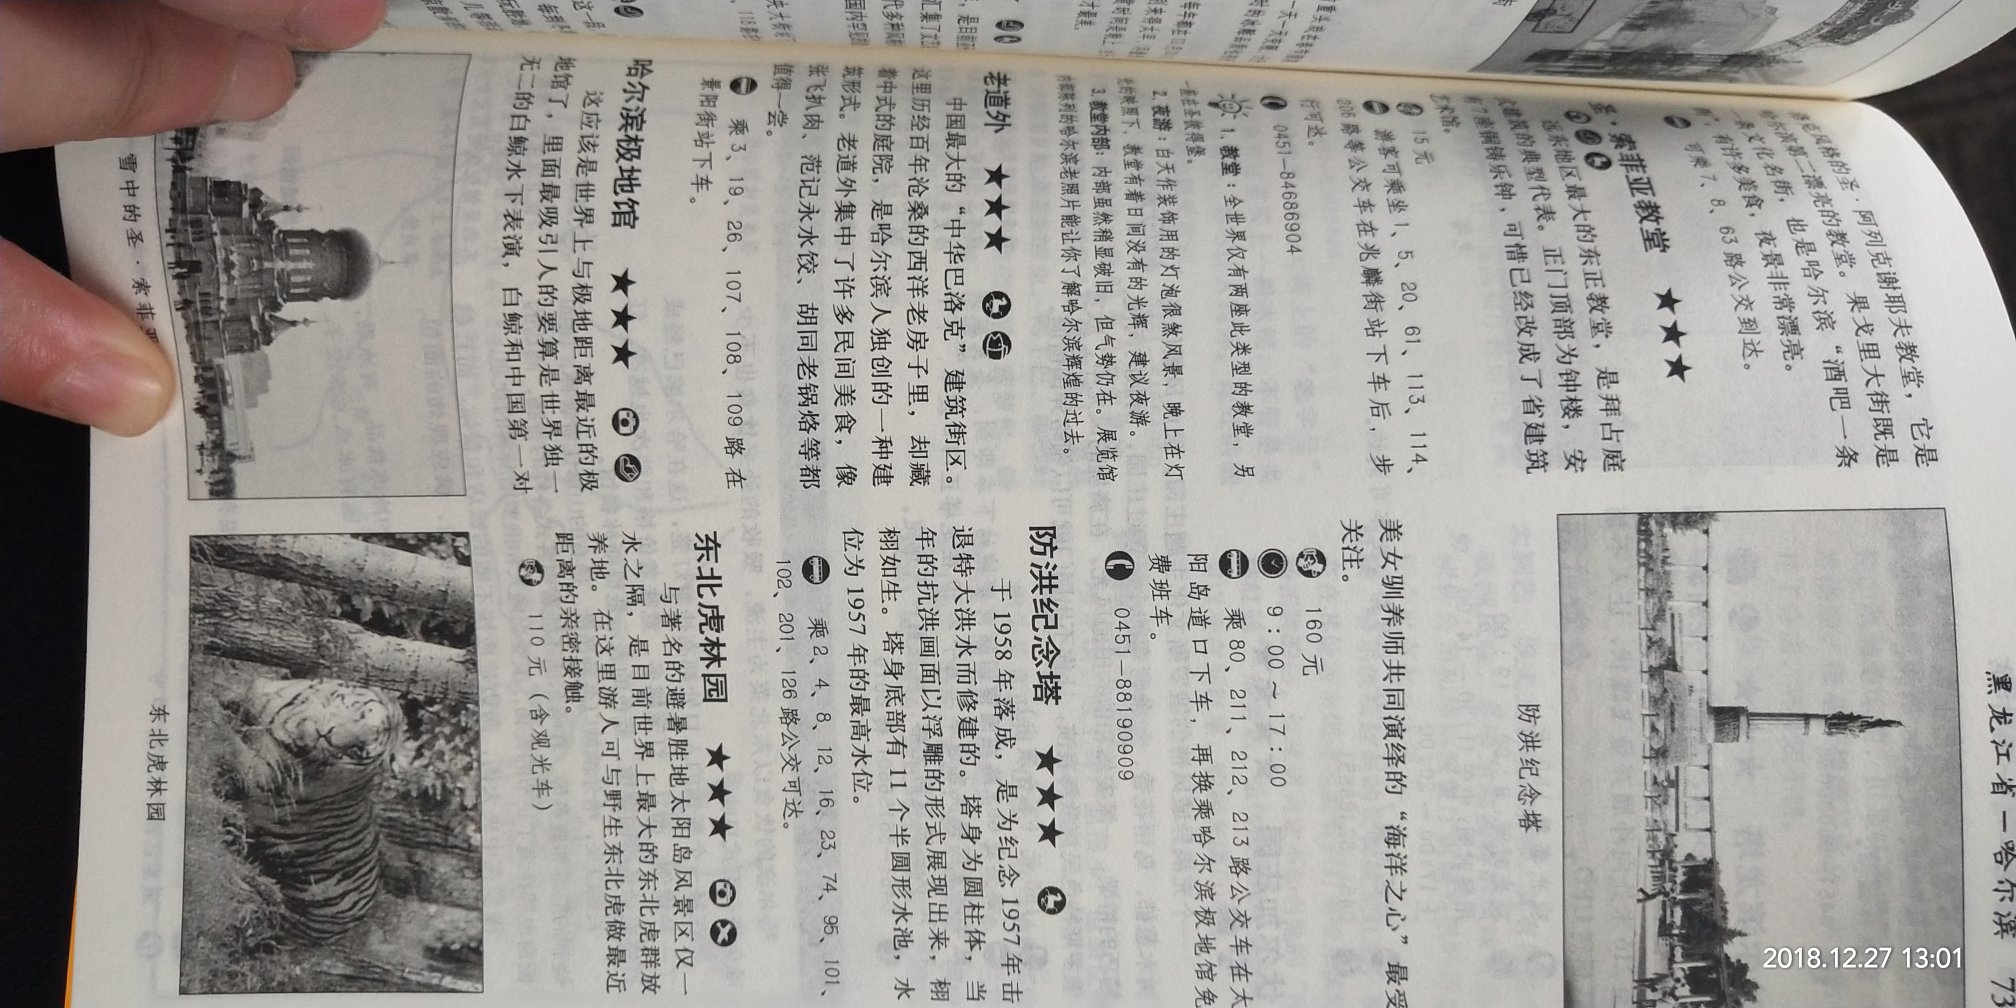 黑龙江省—哈尔滨
圣·阿列克谢耶夫教堂，它是
哈尔滨第二漂亮的教堂。果戈里大街既是
一条文化名街，也是哈尔滨“酒吧一条
街”，有许多美食，夜景非常漂亮。
可乘 7、8、63 路公交到达。
圣·索菲亚教堂 ★★★
远东地区最大的东正教堂，是拜占庭
式建筑的典型代表。正门顶部为钟楼，安
有7座铜铸乐钟，可惜已经改成了省建筑
艺术馆。
15元
游客可乘坐 1、5、20、61、113、114、
206 路等公交车在兆麟街站下车后，步
行可达。
0451—84686904
1. 教堂：全世界仅有两座此类型的教堂，另
一座在圣彼得堡。
2. 夜游：白天作装饰用的灯泡很煞风景，晚上在灯
光的映照下，教堂有着日间没有的光辉，建议夜游。
3. 教堂内部：内部虽然稍显破旧，但气势仍在。展览馆
内部陈列的哈尔滨老照片能让你了解哈尔滨辉煌的过去。
老道外 ★★★
中国最大的“中华巴洛克”建筑街区。
这里历经百年沧桑的西洋老房子里，却藏
着中式的庭院，是哈尔滨人独创的一种建
筑形式。老道外集中了许多民间美食，像
张飞扒肉、范记永水饺、胡同老锅烙等都
值得一尝。
乘 3、19、26、107、108、109 路在
景阳街站下车。
哈尔滨极地馆 ★★★
这应该是世界上与极地距离最近的极
地馆了，里面最吸引人的要算是世界独一
无二的白鲸水下表演，白鲸和中国第一对
雪中的圣·索菲亚
防洪纪念塔
美女驯养师共同演绎的“海洋之心”最受
关注。
160 元
9：00～17：00
乘 80、211、212、213 路公交车在太
阳岛道口下车，再换乘哈尔滨极地馆免
费班车。
0451—88190909
防洪纪念塔 ★★★
于 1958 年落成，是为纪念 1957 年击
退特大洪水而修建的。塔身为圆柱体，当
年的抗洪画面以浮雕的形式展现出来，栩
栩如生。塔身底部有 11 个半圆形水池，水
位为 1957 年的最高水位。
乘 2、4、8、12、16、23、74、95、101、
102、201、126 路公交可达。
东北虎林园 ★★★
与著名的避暑胜地太阳岛风景区仅一
水之隔，是目前世界上最大的东北虎群放
养地。在这里游人可与野生东北虎做最近
距离的亲密接触。
110 元（含观光车）
东北虎林园
2018.12.27 13:01